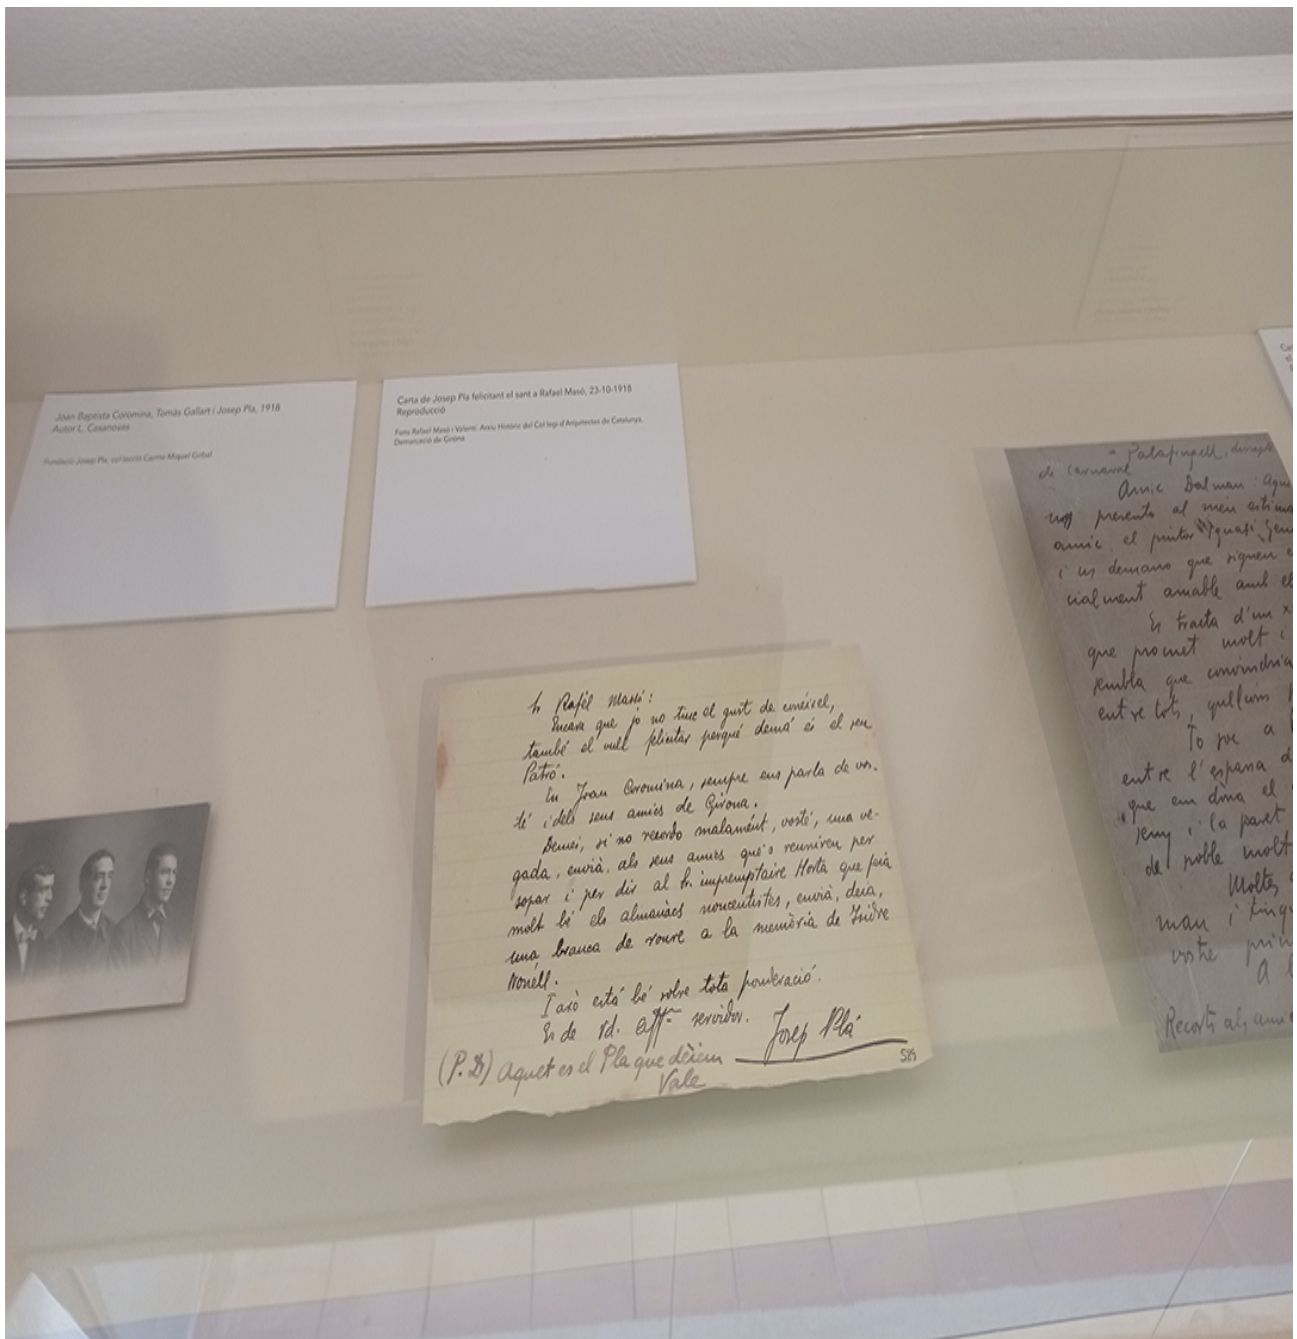 Joan Baptista Coromina, Tomàs Gallart i Josep Pla, 1918
Autor L. Casanovas
Fundació Josep Pla, col·lecció Carme Miquel Gibal
Carta de Josep Pla felicitant el sant a Rafael Masó, 23-10-1918
Reproducció
Fons Rafael Masó i Valentí. Arxiu Històric del Col·legi d'Arquitectes de Catalunya,
Demarcació de Girona
Sr Rafèl Massó:
Encara que jo no tinc el gust de conéixel,
també el vull felicitar perqué demá és el seu
Patró.
En Joan Coromina, sempre ens parla de vos-
té i dels seus amics de Girona.
Demei, si no recordo malamént, vosté, una ve-
gada, enviá, als seus amics que's reuniren per
sopar i per dir al Sr. impremptaire Horta que feia
molt bé els almanacs noucentistes, enviá, deia,
una branca de roure a la memòria de Isidre
Nonell.
I aró está bé sobre tota ponderació.
Es de Vd. aff. servidor.
Josep Plá
(P.D) Aquet es el Pla que dèiem
Vale
584
Palafrugell, diumenge
de Carnaval
Amic Dalmau: Aqui
us presento al meu estima
amic, el pintor "quasi
i us demano que sigueu
cialment amable amb el
Es tracta d'un
que promet molt i
sembla que convindria
entre tots,
Jo soc a
entre l'espasa
que em dona el
seny i la paret
de poble molt
Moltes
man i tingu
vostre prin
A
Recorts als amics